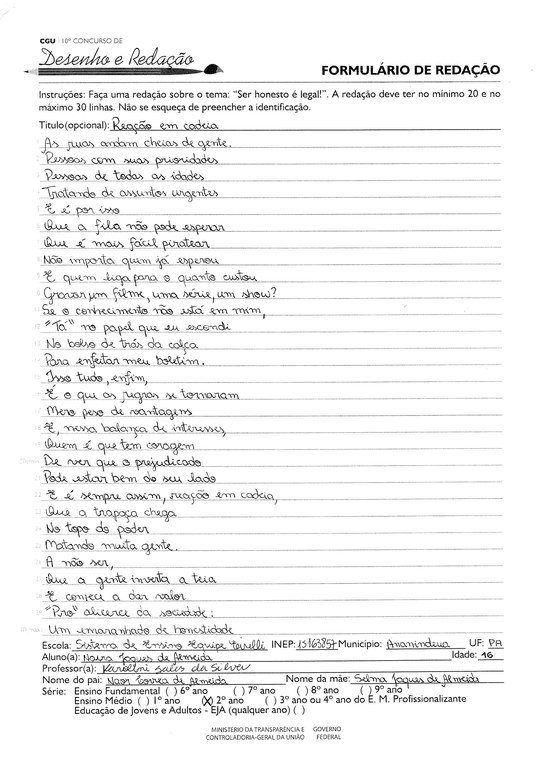 CGU | 10º CONCURSO DE
Desenho e Redação
FORMULÁRIO DE REDAÇÃO
Instruções: Faça uma redação sobre o tema: "Ser honesto é legal!". A redação deve ter no mínimo 20 e no
máximo 30 linhas. Não se esqueça de preencher a identificação.
Título(opcional): Reação em cadeia
As ruas andam cheias de gente.
Pessoas com suas prioridades
Pessoas de todas as idades
Tratando de assuntos urgentes
E é por isso
Que a fila não pode esperar
Que é mais fácil piratear
Não importa quem já esperou
E quem liga para o quanto custou
Gravar um filme, uma série, um show?
Se o conhecimento não está em mim,
"Tá" no papel que eu escondi
No bolso de trás da calça
Para enfeitar meu boletim.
Isso tudo, enfim,
É o que as regras se tornaram
Mero peso de vantagens
E, nessa balança de interesses,
Quem é que tem coragem
De ver que o prejudicado
Pode estar bem do seu lado
E é sempre assim, reação em cadeia,
Que a trapaça chega
No topo do poder
Matando muita gente.
A não ser,
Que a gente inverta a teia
E comece a dar valor
"Pro" alicerce da sociedade:
Um emaranhado de honestidade
Escola: Sistema de Ensino Equipe INEP: 15163857 Município: Ananindeua UF: PA
Aluno(a): Naira Jaques de Almeida Idade: 16
Professor(a): Karoltni Sales da Silva
Nome do pai: Naor Correa de Almeida Nome da mãe: Selma Jaques de Almeida
Série: Ensino Fundamental ( ) 6º ano ( ) 7º ano ( ) 8º ano ( ) 9º ano
Ensino Médio ( ) 1º ano (X) 2º ano ( ) 3º ano ou 4º ano do E. M. Profissionalizante
Educação de Jovens e Adultos - EJA (qualquer ano) ( )
MINISTÉRIO DA TRANSPARÊNCIA E GOVERNO
CONTROLADORIA-GERAL DA UNIÃO FEDERAL